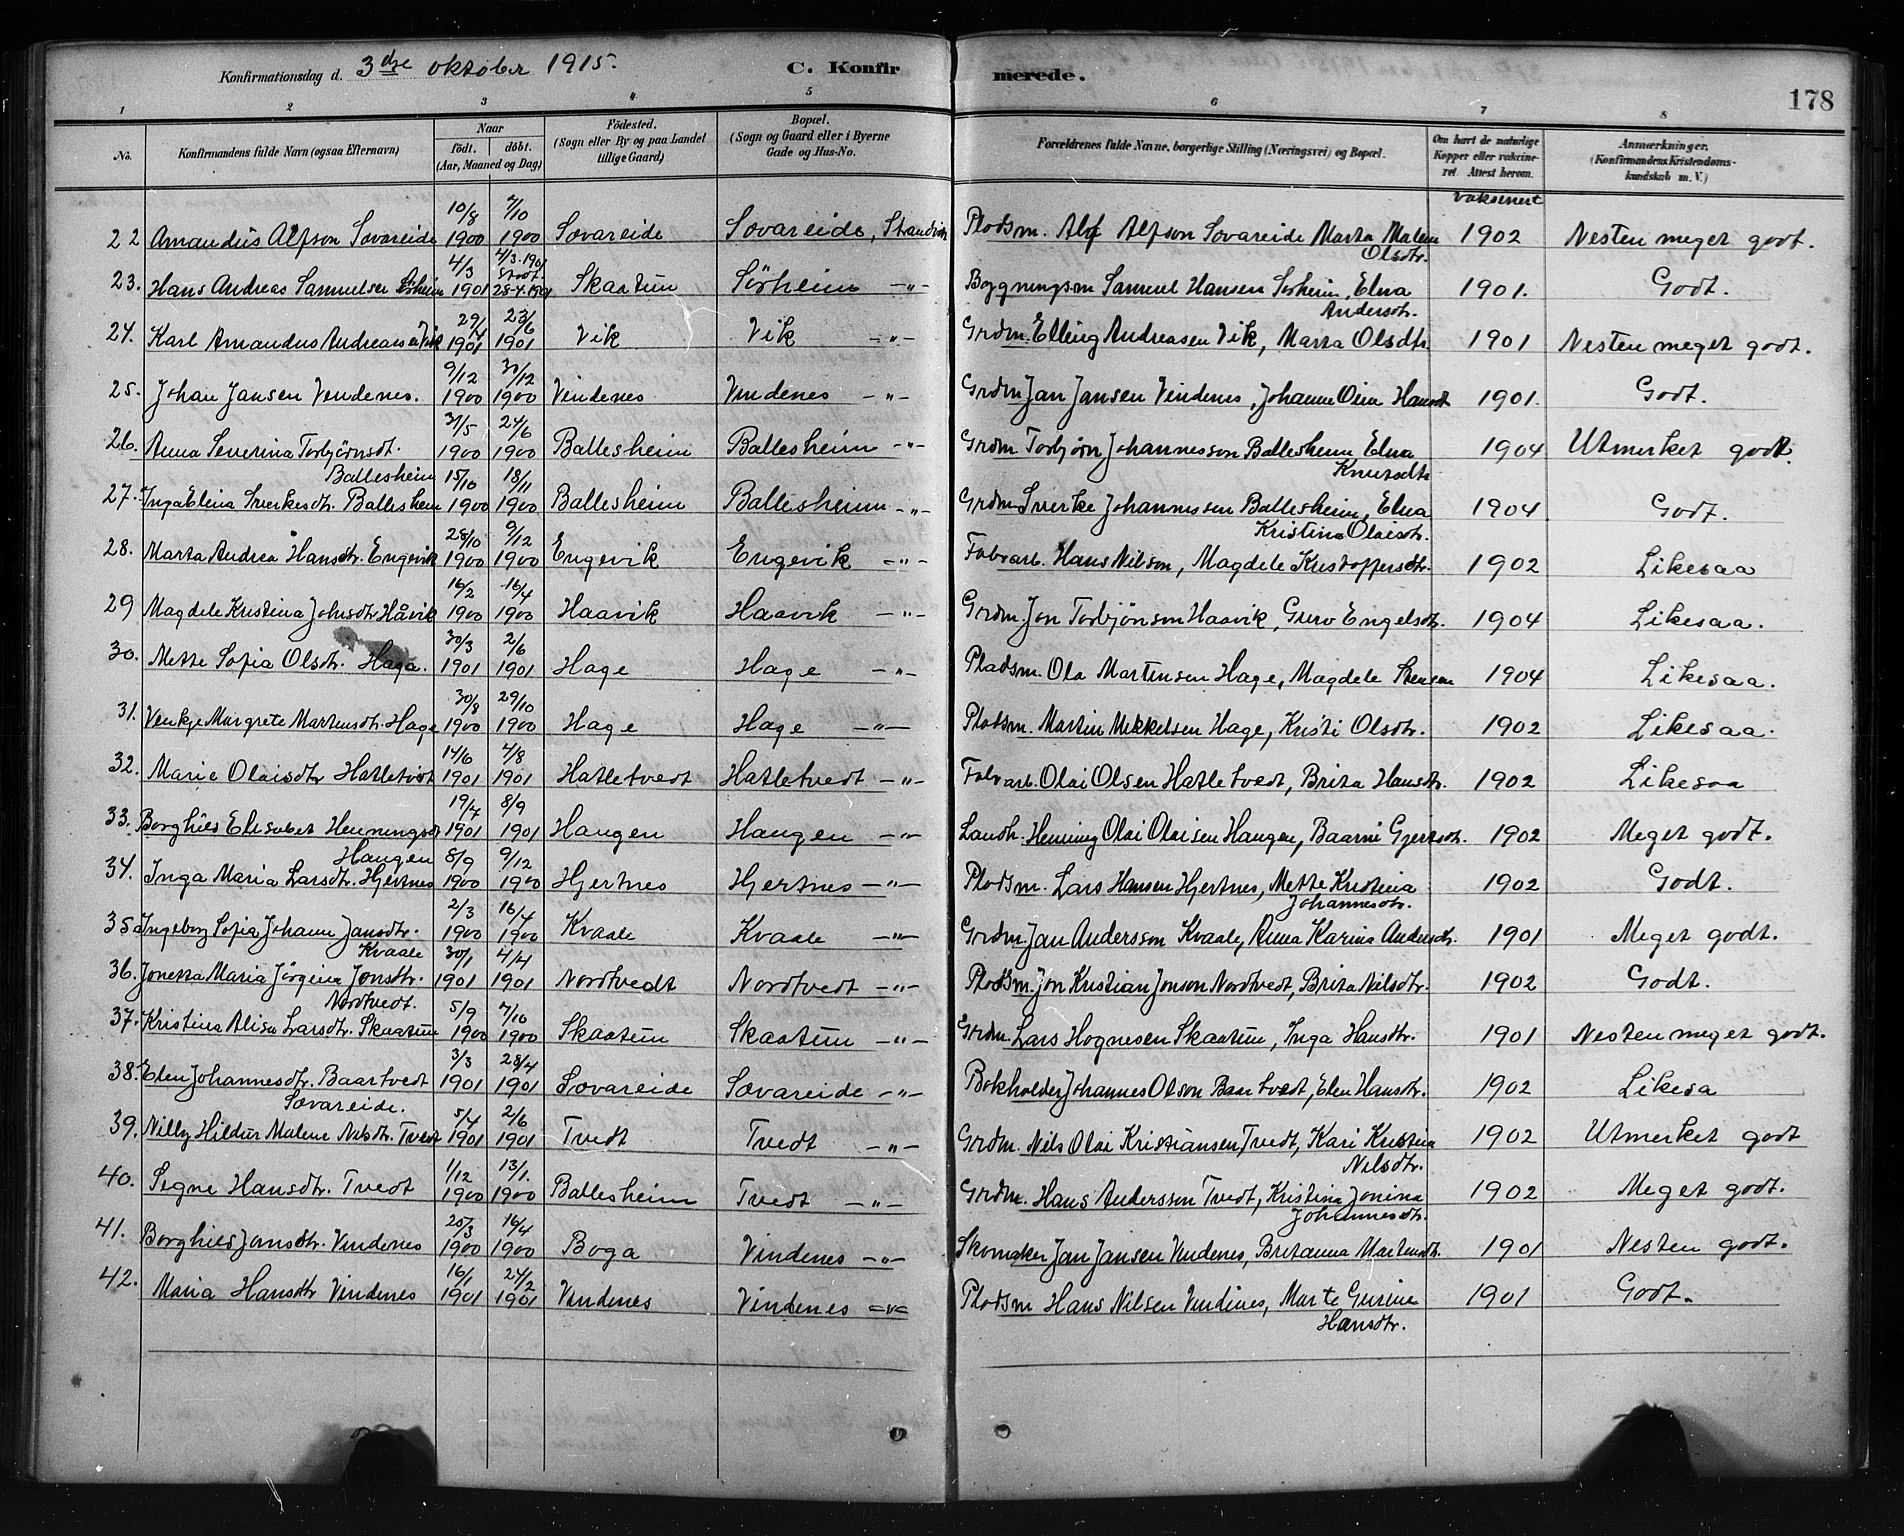 Konfirmationsdag d. 3dje oktober 1915. C. Konfirmerede. 178
1 2 3 4 5 6 7 8
No. Konfirmandens fulde Navn (ogsaa Efternavn) Naar født. døbt. (Aar, Maaned og Dag) Fødested. (Sogn eller By og paa Landet tillige Gaard) Bopæl. (Sogn og Gaard eller i Byerne Gade og Hus-No. Forældrenes fulde Navne, borgerlige Stilling (Næringsvei) og Bopæl. Om havt de naturlige Kopper eller vaksineret. Attest herom. Anmærkninger. (Konfirmandens Kristendomskundskab m. V.)
vaksinert
22 Amandus Alfson Sovareide 10/8 1900 7/10 1900 Sovareide Sovareide, Strandvik Pladsm. Alf Alfson Sovareide Marta Malene Olsdtr. 1902 Nesten meget godt.
23. Hans Andreas Samuelsen Sörheim 4/3 1901 4/3 1901 28-4-1901 Skaatun Sörheim -"- Bygningsm Samuel Hansen Sörheim, Elna Andersdtr. 1901. Godt.
24. Karl Amandus Andreassen Vik 29/4 1901 23/6 1901 Vik Vik -"- Grdm. Elling Andreasen Vik, Marta Olsdtr 1901 Nesten meget godt.
25. Johan Jansen Vindenes. 9/12 1900 30/12 1900 Vindenes Vindenes -"- Grdm Jan Jansen Vindenes, Johanne Oline Hansdt 1901. Godt.
26. Anna Severina Torbjörnsdt. Ballesheim 31/5 1900 24/6 1900 Ballesheim Ballesheim -"- Grdm Torbjörn Johannesson Ballesheim Elna Knutsdtr 1904 Utmerket godt.
27. Inga Elina Sverkesdt. Ballesheim 15/10 1900 18/11 1900 Ballesheim Ballesheim -"- Grdm Sverke Johannessen Ballesheim, Elna Kristina Olaisdtr. 1904 Godt.
28. Marta Andrea Hansdtr. Engevik 28/10 1900 9/12 1900 Engevik Engevik -"- Fabrarb. Hans Nilson, Magdele Kristoffersdtr. 1902 Likesaa
29 Magdele Kristina Johnsdtr Håvik 16/2 1900 16/4 1900 Haavik Haavik -"- Grdm. Jon Torbjönson Haavik, Gurv Engelsdtr. 1904 Likesaa.
30. Mette Sofia Olsdtr. Haga. 30/3 1901 2/6 1901 Hage Hage -"- Pladsm. Ola Martensen Hage, Magdele 1904 Likesaa.
31. Venkje Margrete Martensdtr. Hage 30/8 1900 29/10 1900 Hage Hage -"- Pladsm. Martin Mikkelsen Hage, Kristi Olsdtr. 1902 Likesaa.
32. Marie Olaisdtr Hatletvedt 14/6 1901 4/8 1901 Hatletvedt Hatletvedt -"- Fabrarb. Olai Olsen Hatletvedt, Brita Hansdtr. 1902 Likesaa
33. Borghild Elisabet Henningsdt Haugen 19/7 1901 8/9 1901 Haugen Haugen -"- Landh. Henning Olai Olaisen Haugen, Baarni Gjertsdtr. 1902 Meget godt.
34. Inga Maria Larsdtr. Hjertnes 8/9 1900 9/12 1900 Hjertnes Hjertnes -"- Pladsm. Lars Hansen Hjertnes, Mette Kristina Johannesdtr. 1902 Godt.
35 Ingeborg Sofia Johane Jansdtr. Kvaale 2/3 1900 16/4 1900 Kvaale Kvaale -"- Grdm Jan Andersson Kvaale, Anna Karina Andersdtr. 1901 Meget godt.
36. Jonetta Maria Jörgina Jonsdtr. Nordtvedt. 30/1 1901 4/4 1901 Nordtvedt Nordtvedt -"- Pladsm. Jon Kristian Jonson Nordtvedt, Brita Nilsdtr. 1902 Godt.
37. Kristina Alisa Larsdtr. Skaatun 5/9 1900 7/10 1900 Skaatun Skaatun -"- Grdm. Lars Hognesen Skaatun, Inga Hansdtr. 1901 Nesten meget godt.
38. Elen Johannesdtr. Baartvedt Sovareide. 3/3 1901 28/4 1901 Sovareide Sovareide -"- Bokholder Johannes Olson Baartvedt, Elen Hansdtr. 1902 Likesa
39. Nilly Hildur Malene Nilsdtr. Tvedt 5/4 1901 2/6 1901 Tvedt Tvedt -"- Grdm. Nils Olai Kristiansen Tvedt, Kari Kristina Nilsdtr. 1902 Utmerket godt
40. Segne Hansdtr. Tvedt 1/12 1900 13/1. 1900 Ballesheim Tvedt -"- Grdm. Hans Andersson Tvedt, Kristina Jonina Johannesdtr. 1902 Meget godt.
41. Borghild Jansdtr. Vindenes 25/3 1900 16/4 1900 Boga Vindenes -"- Skomaker Jan Jansen Vindenes, Britanna Martensdtr. 1901 Nesten godt.
42. Maria Hansdtr Vindenes 16/1 1901 24/2 1901 Vindenes Vindenes -"- Pladsm Hans Nilsen Vindines, Marte Gurine Hansdtr. 1901 Godt.